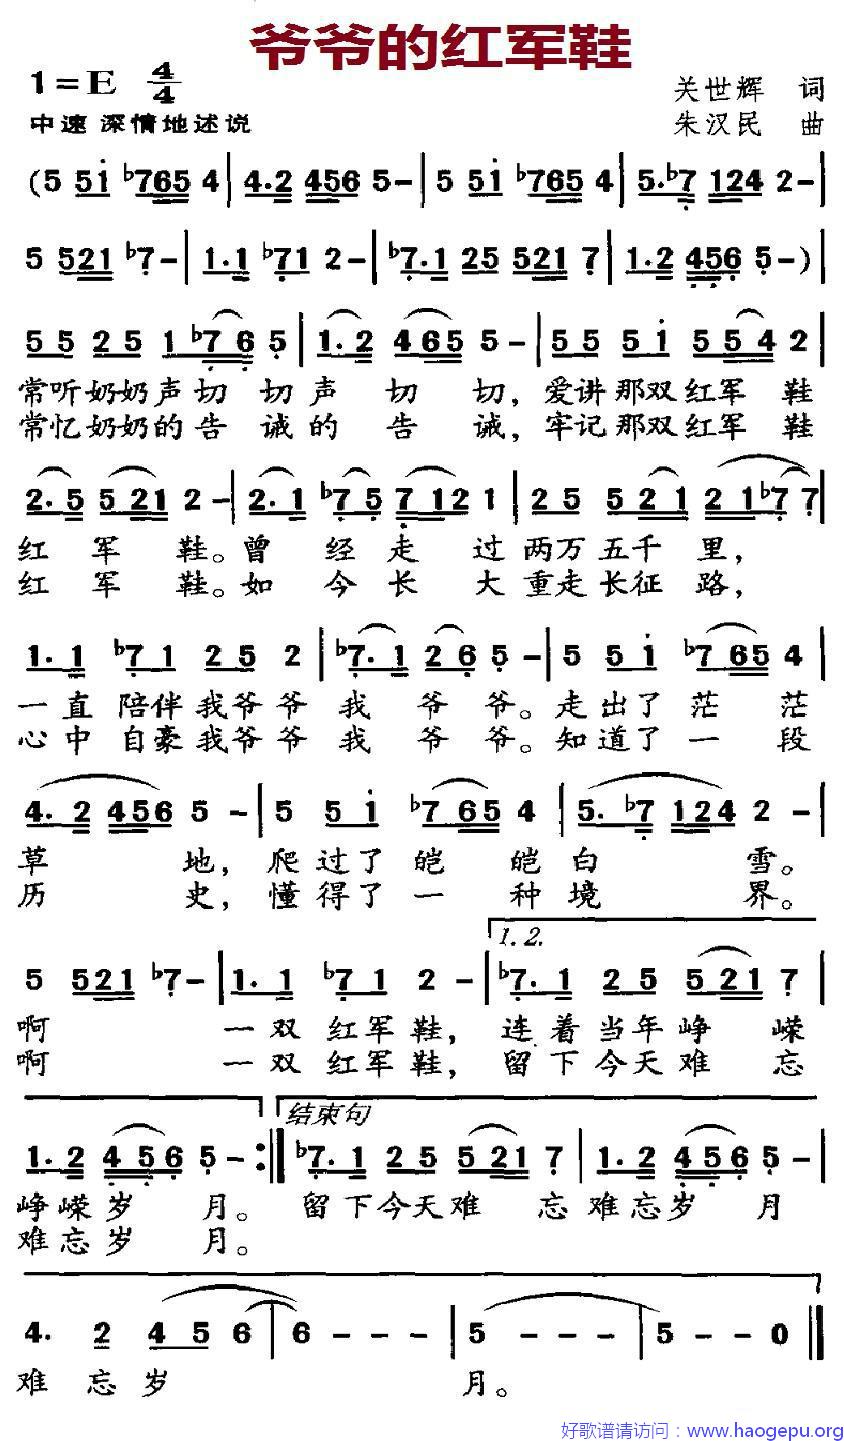 爷爷的红军鞋
1=E 4/4
关世辉 词
中速 深情地述说
朱汉民 曲
(5 51 b765 4 | 4.2 456 5 - | 5 51 b765 4 | 5.b7 124 2 - |
5 521 b7 - | 1.1 b71 2 - | b7.1 25 521 7 | 1.2 456 5 - ) |
55 25 1b76 5 | 1.2 465 5 - | 55 51 554 2 |
常听奶奶声切 切声 切 切，爱讲那双红军 鞋
常忆奶奶的告 诫的 告 诫，牢记那双红军 鞋
2.5 521 2 - | 2.1 b75 712 1 | 25 521 21b7 7 |
红 军 鞋。曾 经 走 过 两万 五千 里，
红 军 鞋。如 今 长 大 重走 长征 路，
1.1 b71 25 2 | b7.1 26 5 - | 5 51 b765 4 |
一直 陪伴 我爷 爷 我 爷 爷。走 出了 茫 茫
心中 自豪 我爷 爷 我 爷 爷。知 道了 一 段
4.2 456 5 - | 5 51 b765 4 | 5.b7 124 2 - |
草 地，爬 过了 皑 皑 白 雪。
历 史，懂 得了 一 种 境 界。
1.2.
5 521 b7 - | 1.1 b71 2 - | b7.1 25 521 7 |
啊 一双 红军 鞋，连着 当年 峥 嵘
啊 一双 红军 鞋，留下 今天 难 忘
结束句
1.2 456 5 - :‖ b7.1 25 521 7 | 1.2 456 5 - |
峥嵘 岁 月。留下 今天 难 忘 难忘 岁 月
难忘 岁 月。
4. 2 45 6 | 6 - - - | 5 - - - | 5 - - 0 ‖
难 忘 岁 月。
好歌谱请访问：www.haogepu.org